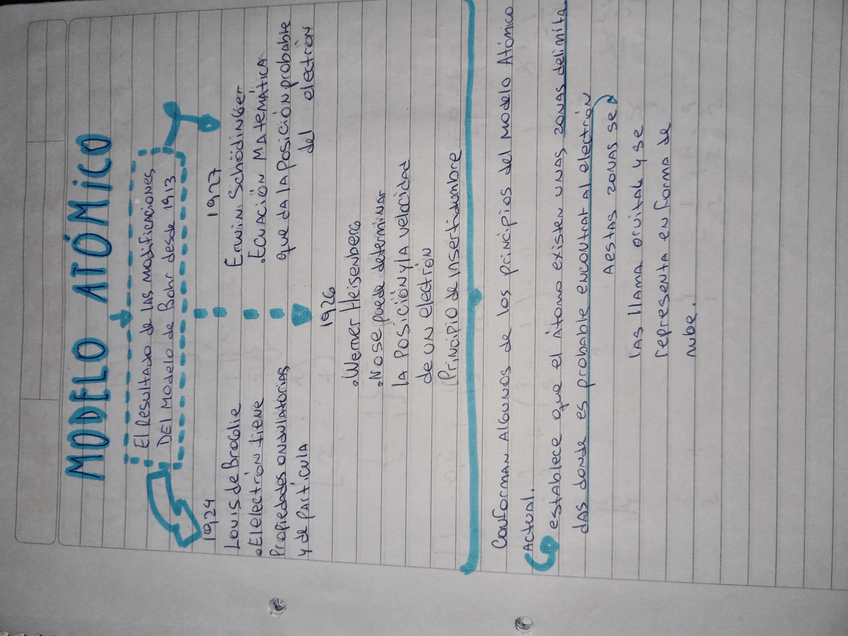 MODELO ATÓMICO
El Resultado de las modificaciones
DEL Modelo de Bohr desde 1913
1924
Louis de Broglie
. El electrón tiene
Propiedades ondulatorias
y de partícula
1927
Erwin Schödinger
. Ecuación Matemática
que da la Posición probable
del electrón
1926
. Werner Heisenberg
. No se puede determinar
la Posición y la velocidad
de un electrón
Principio de insertidumbre
Conforman algunos de los principios del modelo Atómico
Actual.
establece que el átomo existen unas zonas delimita
das donde es probable encontrar al electrón
A estas zonas se
las llama orvital y se
representa en forma de
nube.